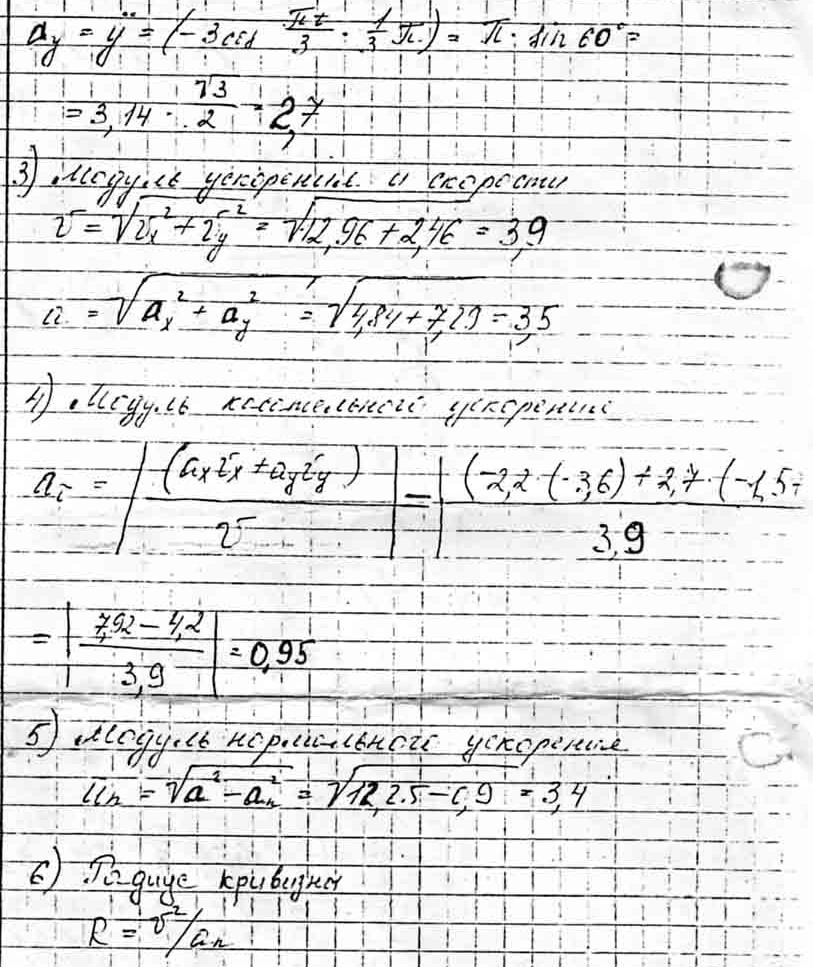 a_y = ÿ = (-3cos πt/3 · 1/3 π) = π · sin 60° =
= 3,14 · √3/2 = 2,7
3) Модуль ускорения и скорости
v = √v_x² + v_y² = √12,96 + 2,46 = 3,9
a = √a_x² + a_y² = √4,84 + 7,29 = 3,5
4) Модуль касательного ускорения
a_τ = |(a_x v_x + a_y v_y) / v| = |(-2,2 · (-3,6) + 2,7 · (-1,5+ / 3,9
= |7,92 - 4,2 / 3,9| = 0,95
5) Модуль нормального ускорения
a_n = √a² - a_n² = √12,25 - 0,9 = 3,4
6) Радиус кривизны
R = v²/a_n